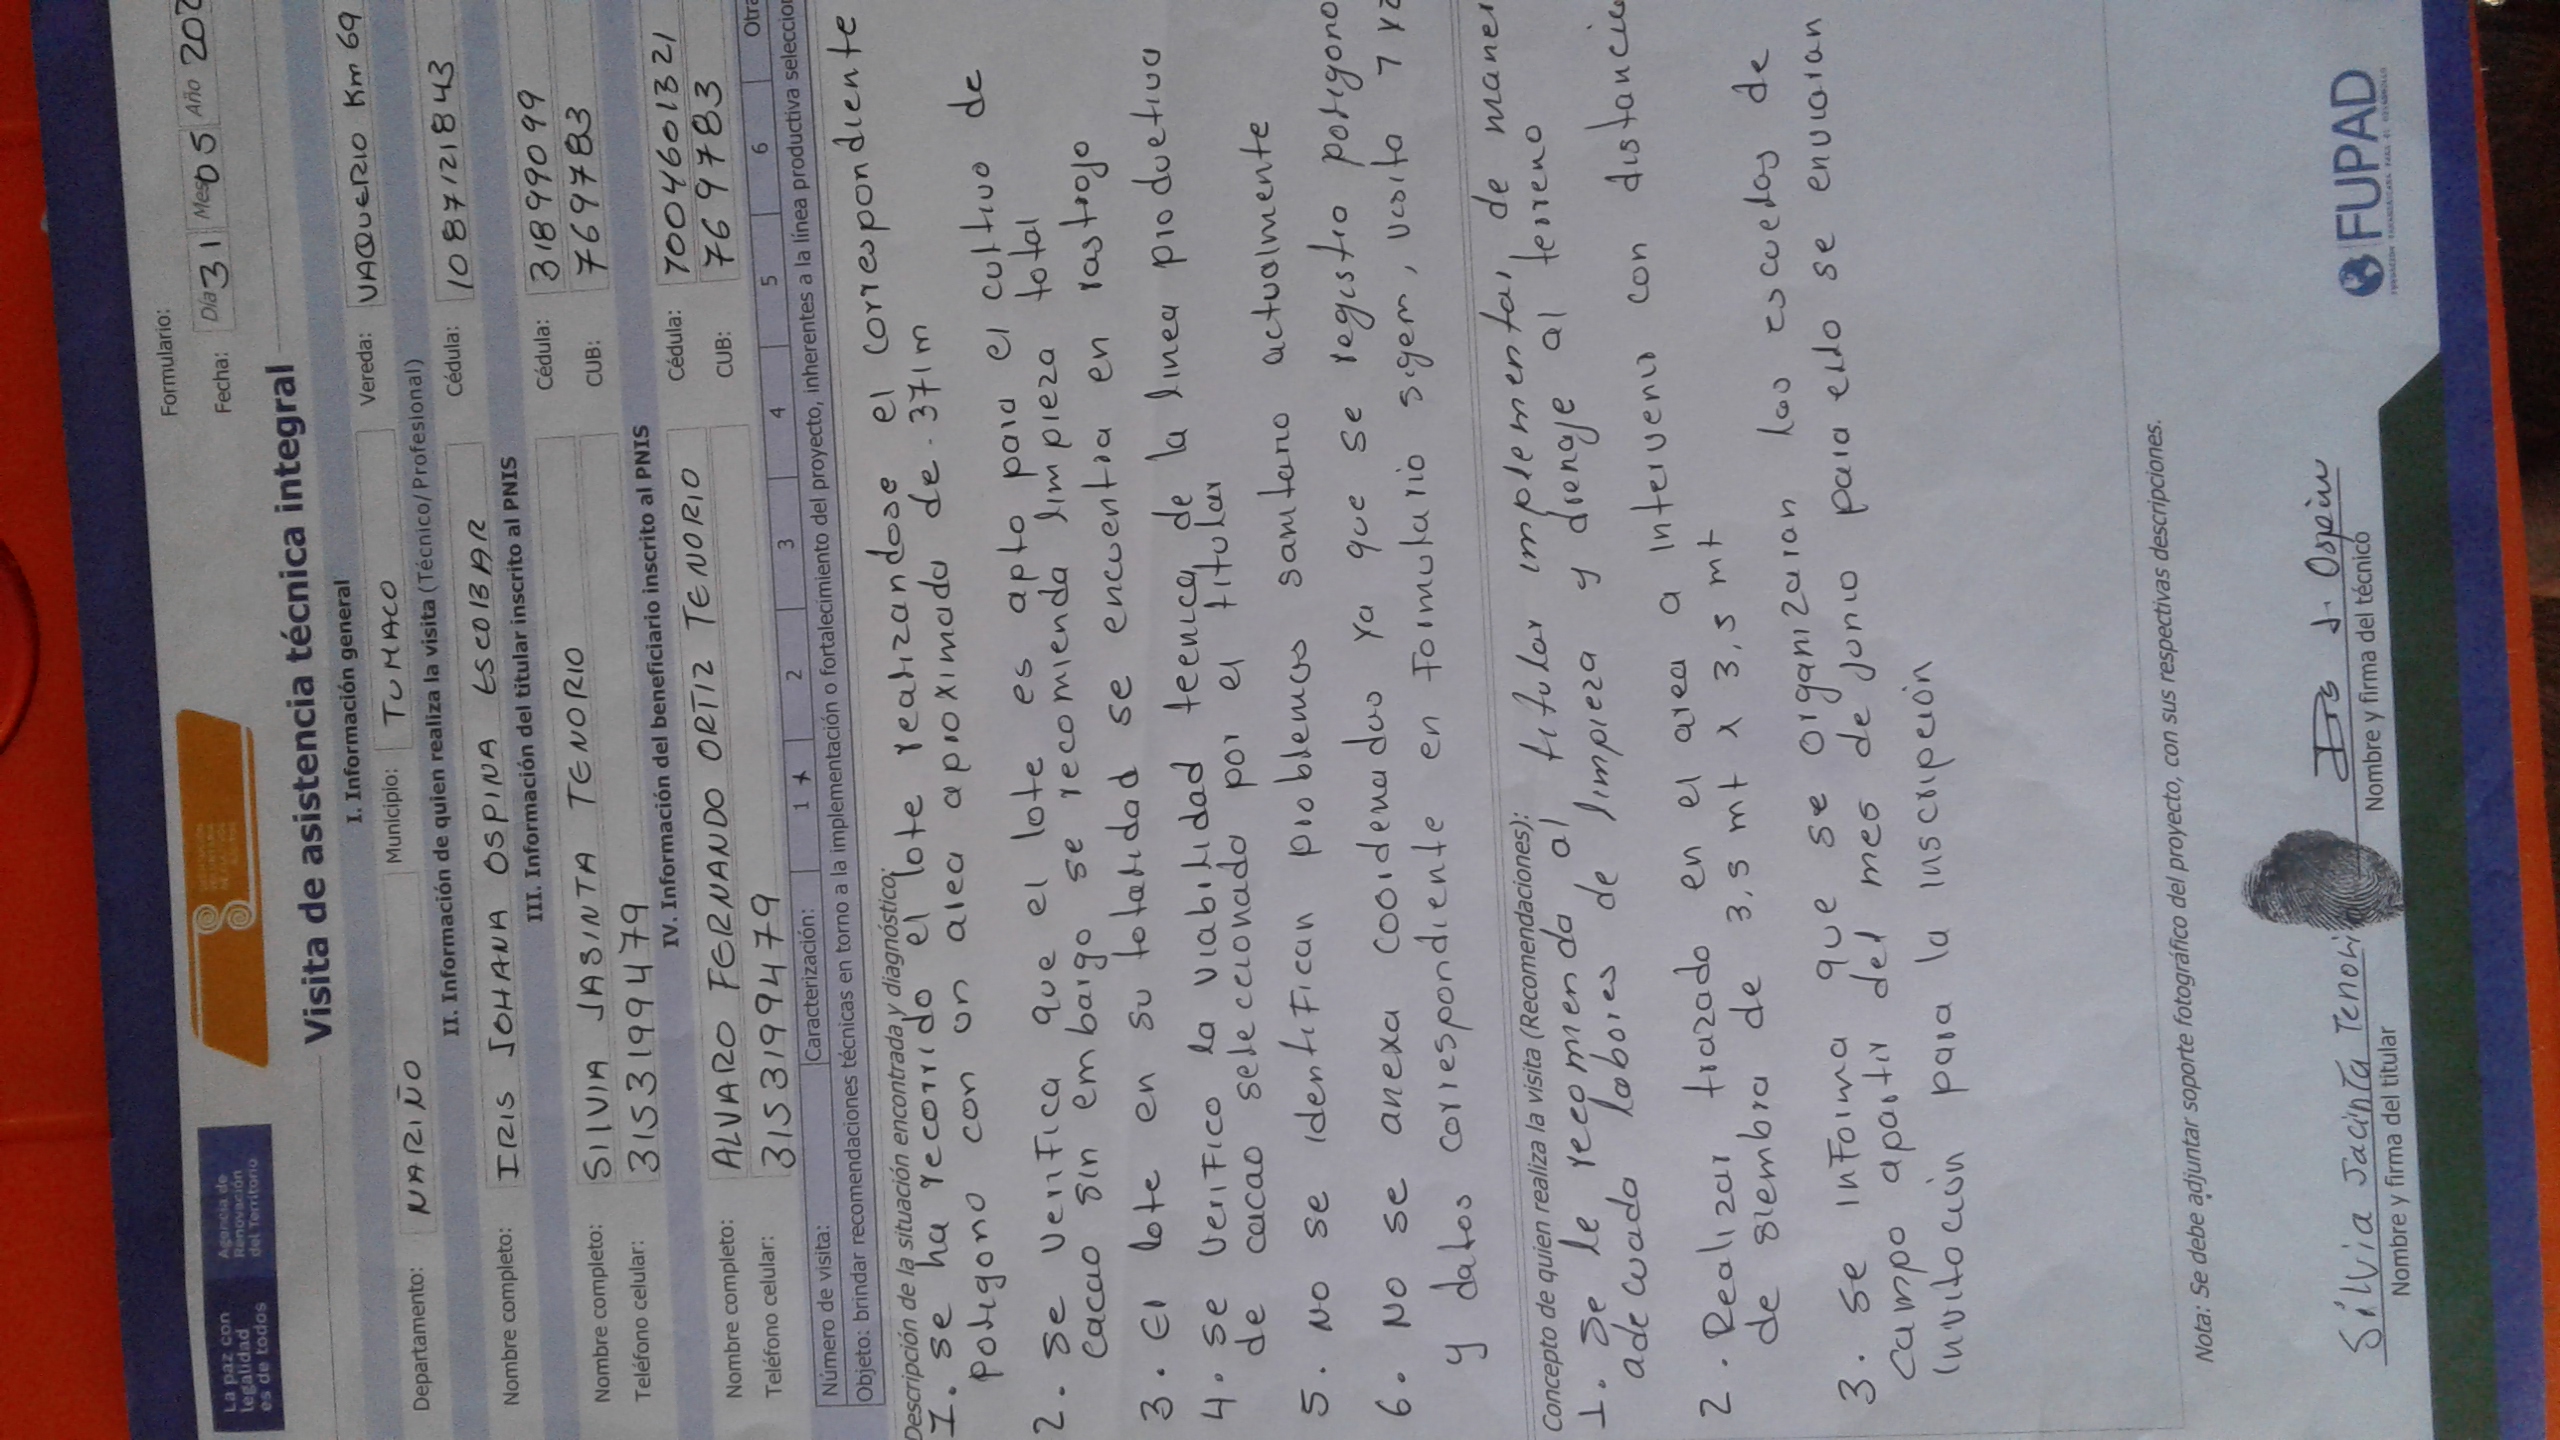 La paz con
legalidad
es de todos
Agencia de
Renovación
del Territorio
Formulario:
Fecha: Día 31 Mes 05 Año 202
Visita de asistencia técnica integral
I. Información general
Departamento: NARIÑO Municipio: TUMACO Vereda: VAQUERIO Km 69
II. Información de quien realiza la visita (Técnico/Profesional)
Nombre completo: IRIS JOHANA OSPINA ESCOBAR Cédula: 1087121843
III. Información del titular inscrito al PNIS
Nombre completo: SILVIA JASINTA TENORIO Cédula: 31899099
Teléfono celular: 3153199479 CUB: 769783
IV. Información del beneficiario inscrito al PNIS
Nombre completo: ALVARO FERNANDO ORTIZ TENORIO Cédula: 1004601321
Teléfono celular: 3153199479 CUB: 769783
Número de visita: Caracterización: 1 x 2 3 4 5 6 Otra
Objeto: brindar recomendaciones técnicas en torno a la implementación o fortalecimiento del proyecto, inherentes a la línea productiva seleccion
Descripción de la situación encontrada y diagnóstico:
1. se ha recorrido el lote realizandose el correspondiente
poligono con un area aproximada de. 371m
2. se verifica que el lote es apto para el cultivo de
cacao sin embargo se recomienda limpieza total
3. El lote en su totalidad se encuentra en rastrojo
4. se verifico la viabilidad tecnica de la linea productiva
de cacao seleccionado por el titular
5. No se identifican problemas sanitario actualmente
6. No se anexa coordenadas ya que se registro poligono
y datos correspondiente en formulario sigem, visita 1 y 2
Concepto de quien realiza la visita (Recomendaciones):
1. se le recomienda al titular implementar, de maner
adecuada labores de limpieza y drenaje al terreno
2. Realizar trazado en el area a intervenir con distancia
de siembra de 3,5 mt x 3,5 mt
3. se informa que se organizaran las escuelas de
campo apartir del mes de junio para ello se enviaran
invitación para la inscripción
Nota: Se debe adjuntar soporte fotográfico del proyecto, con sus respectivas descripciones.
Silvia Jacinta Tenori
Nombre y firma del titular
Iris J. Ospina
Nombre y firma del técnico
FUPAD